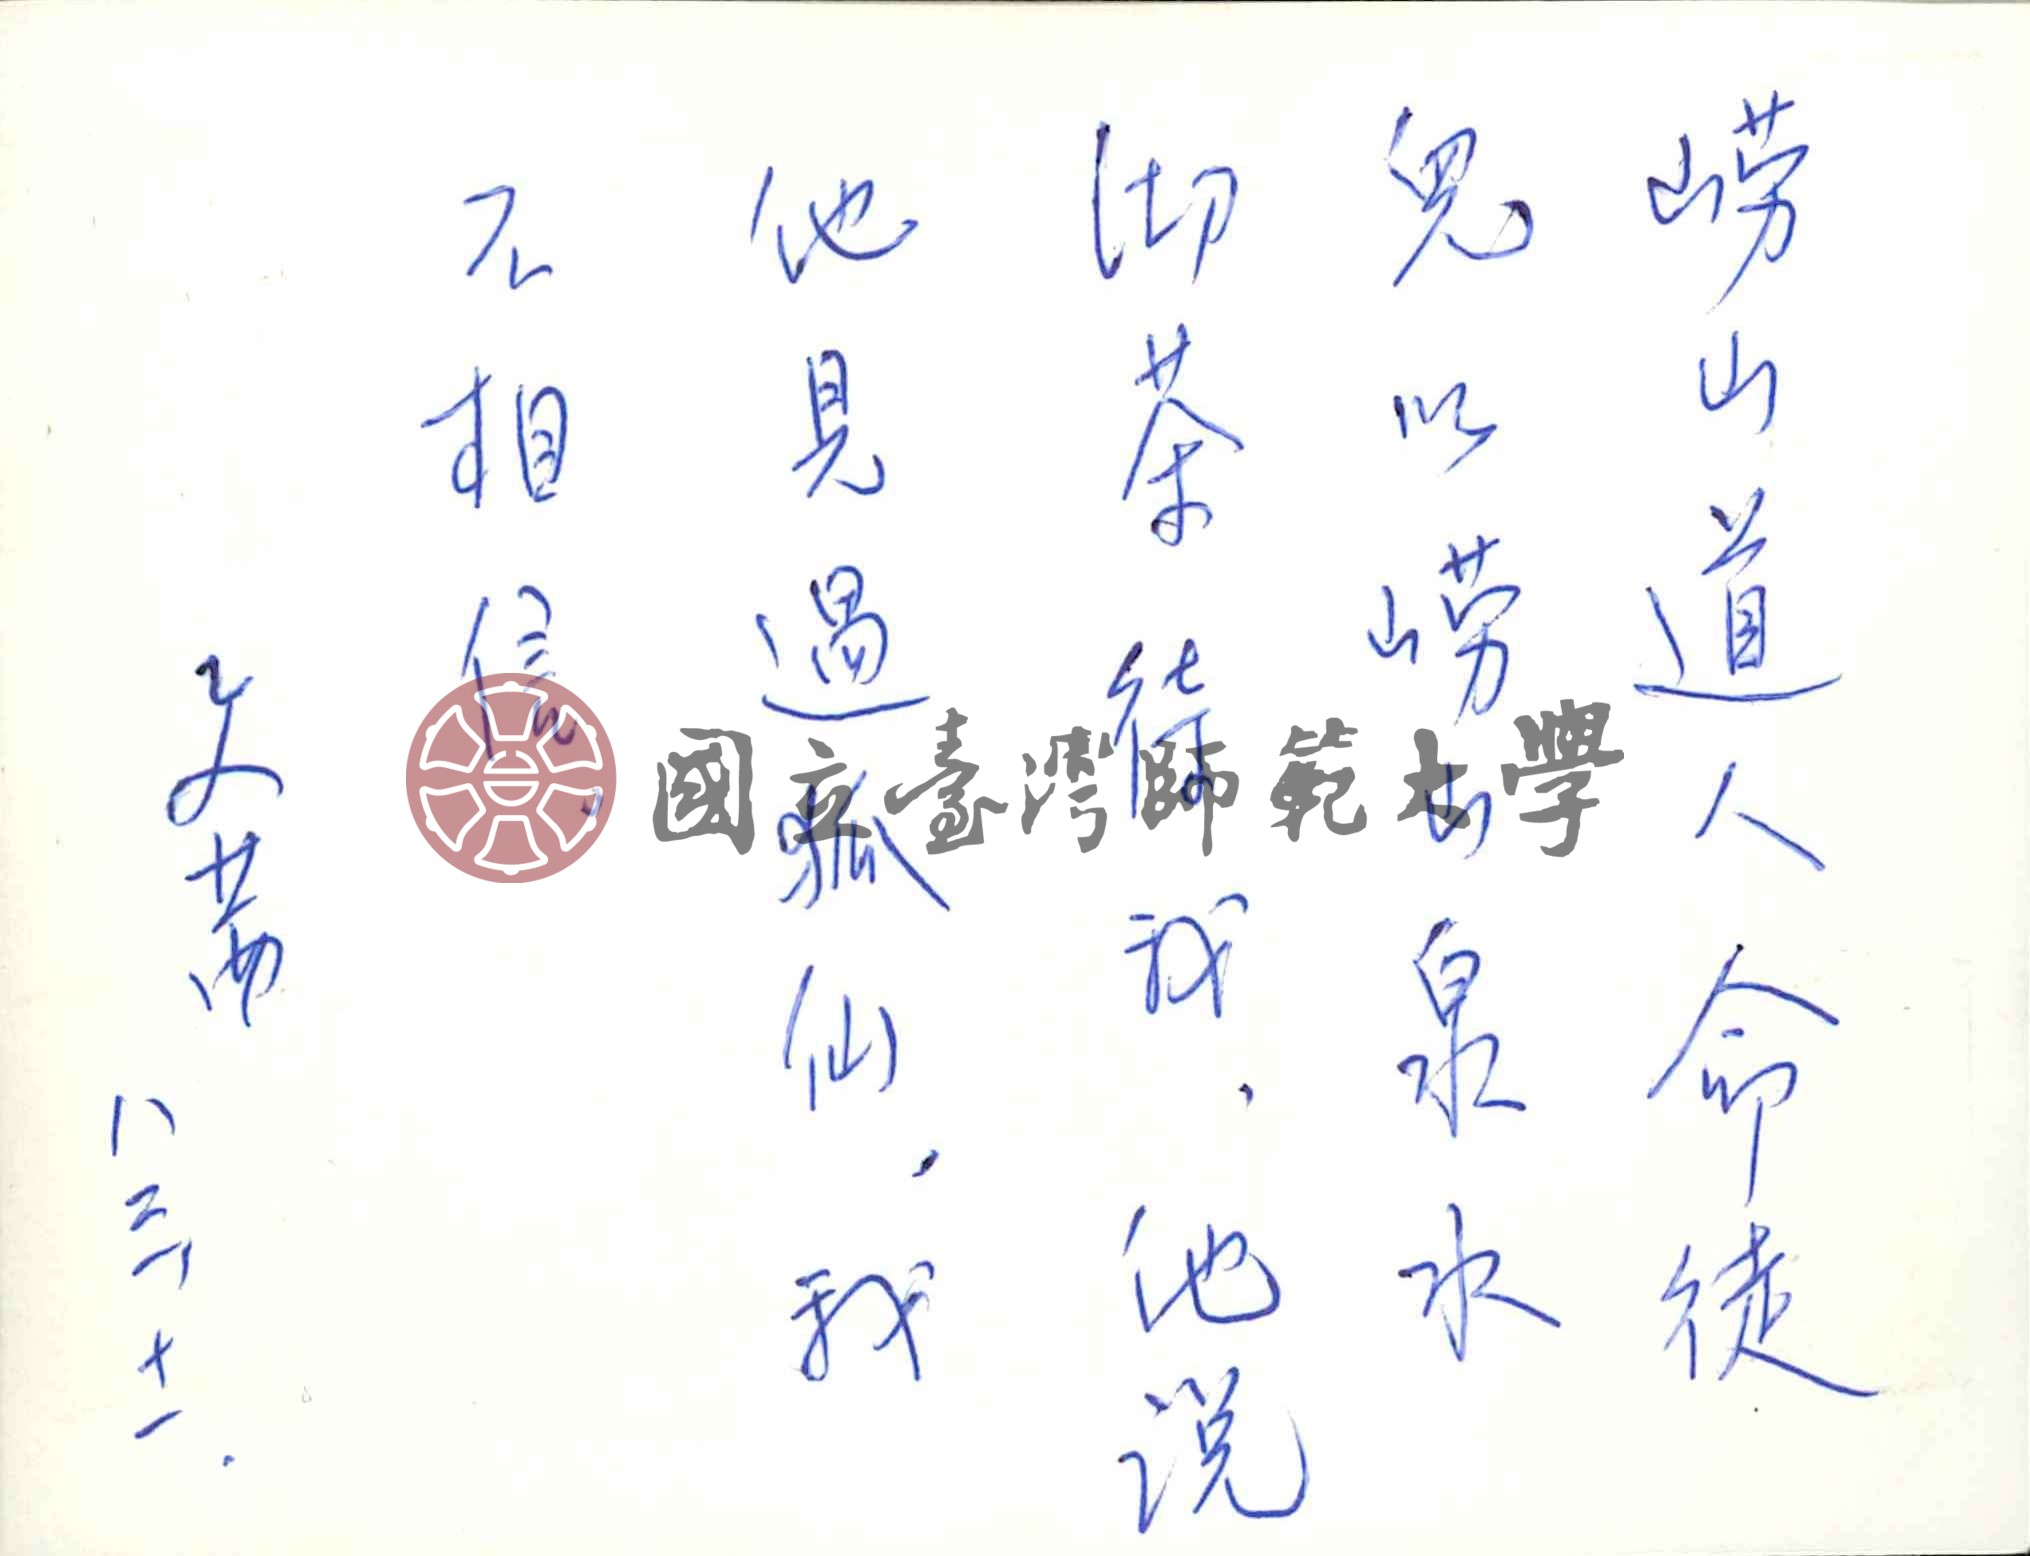 崂山道人命徒
兒以崂山泉水
沏茶待我，他说
他見過狐仙，我
不相信，
文茜 八三、十一.
國立臺灣師範大學